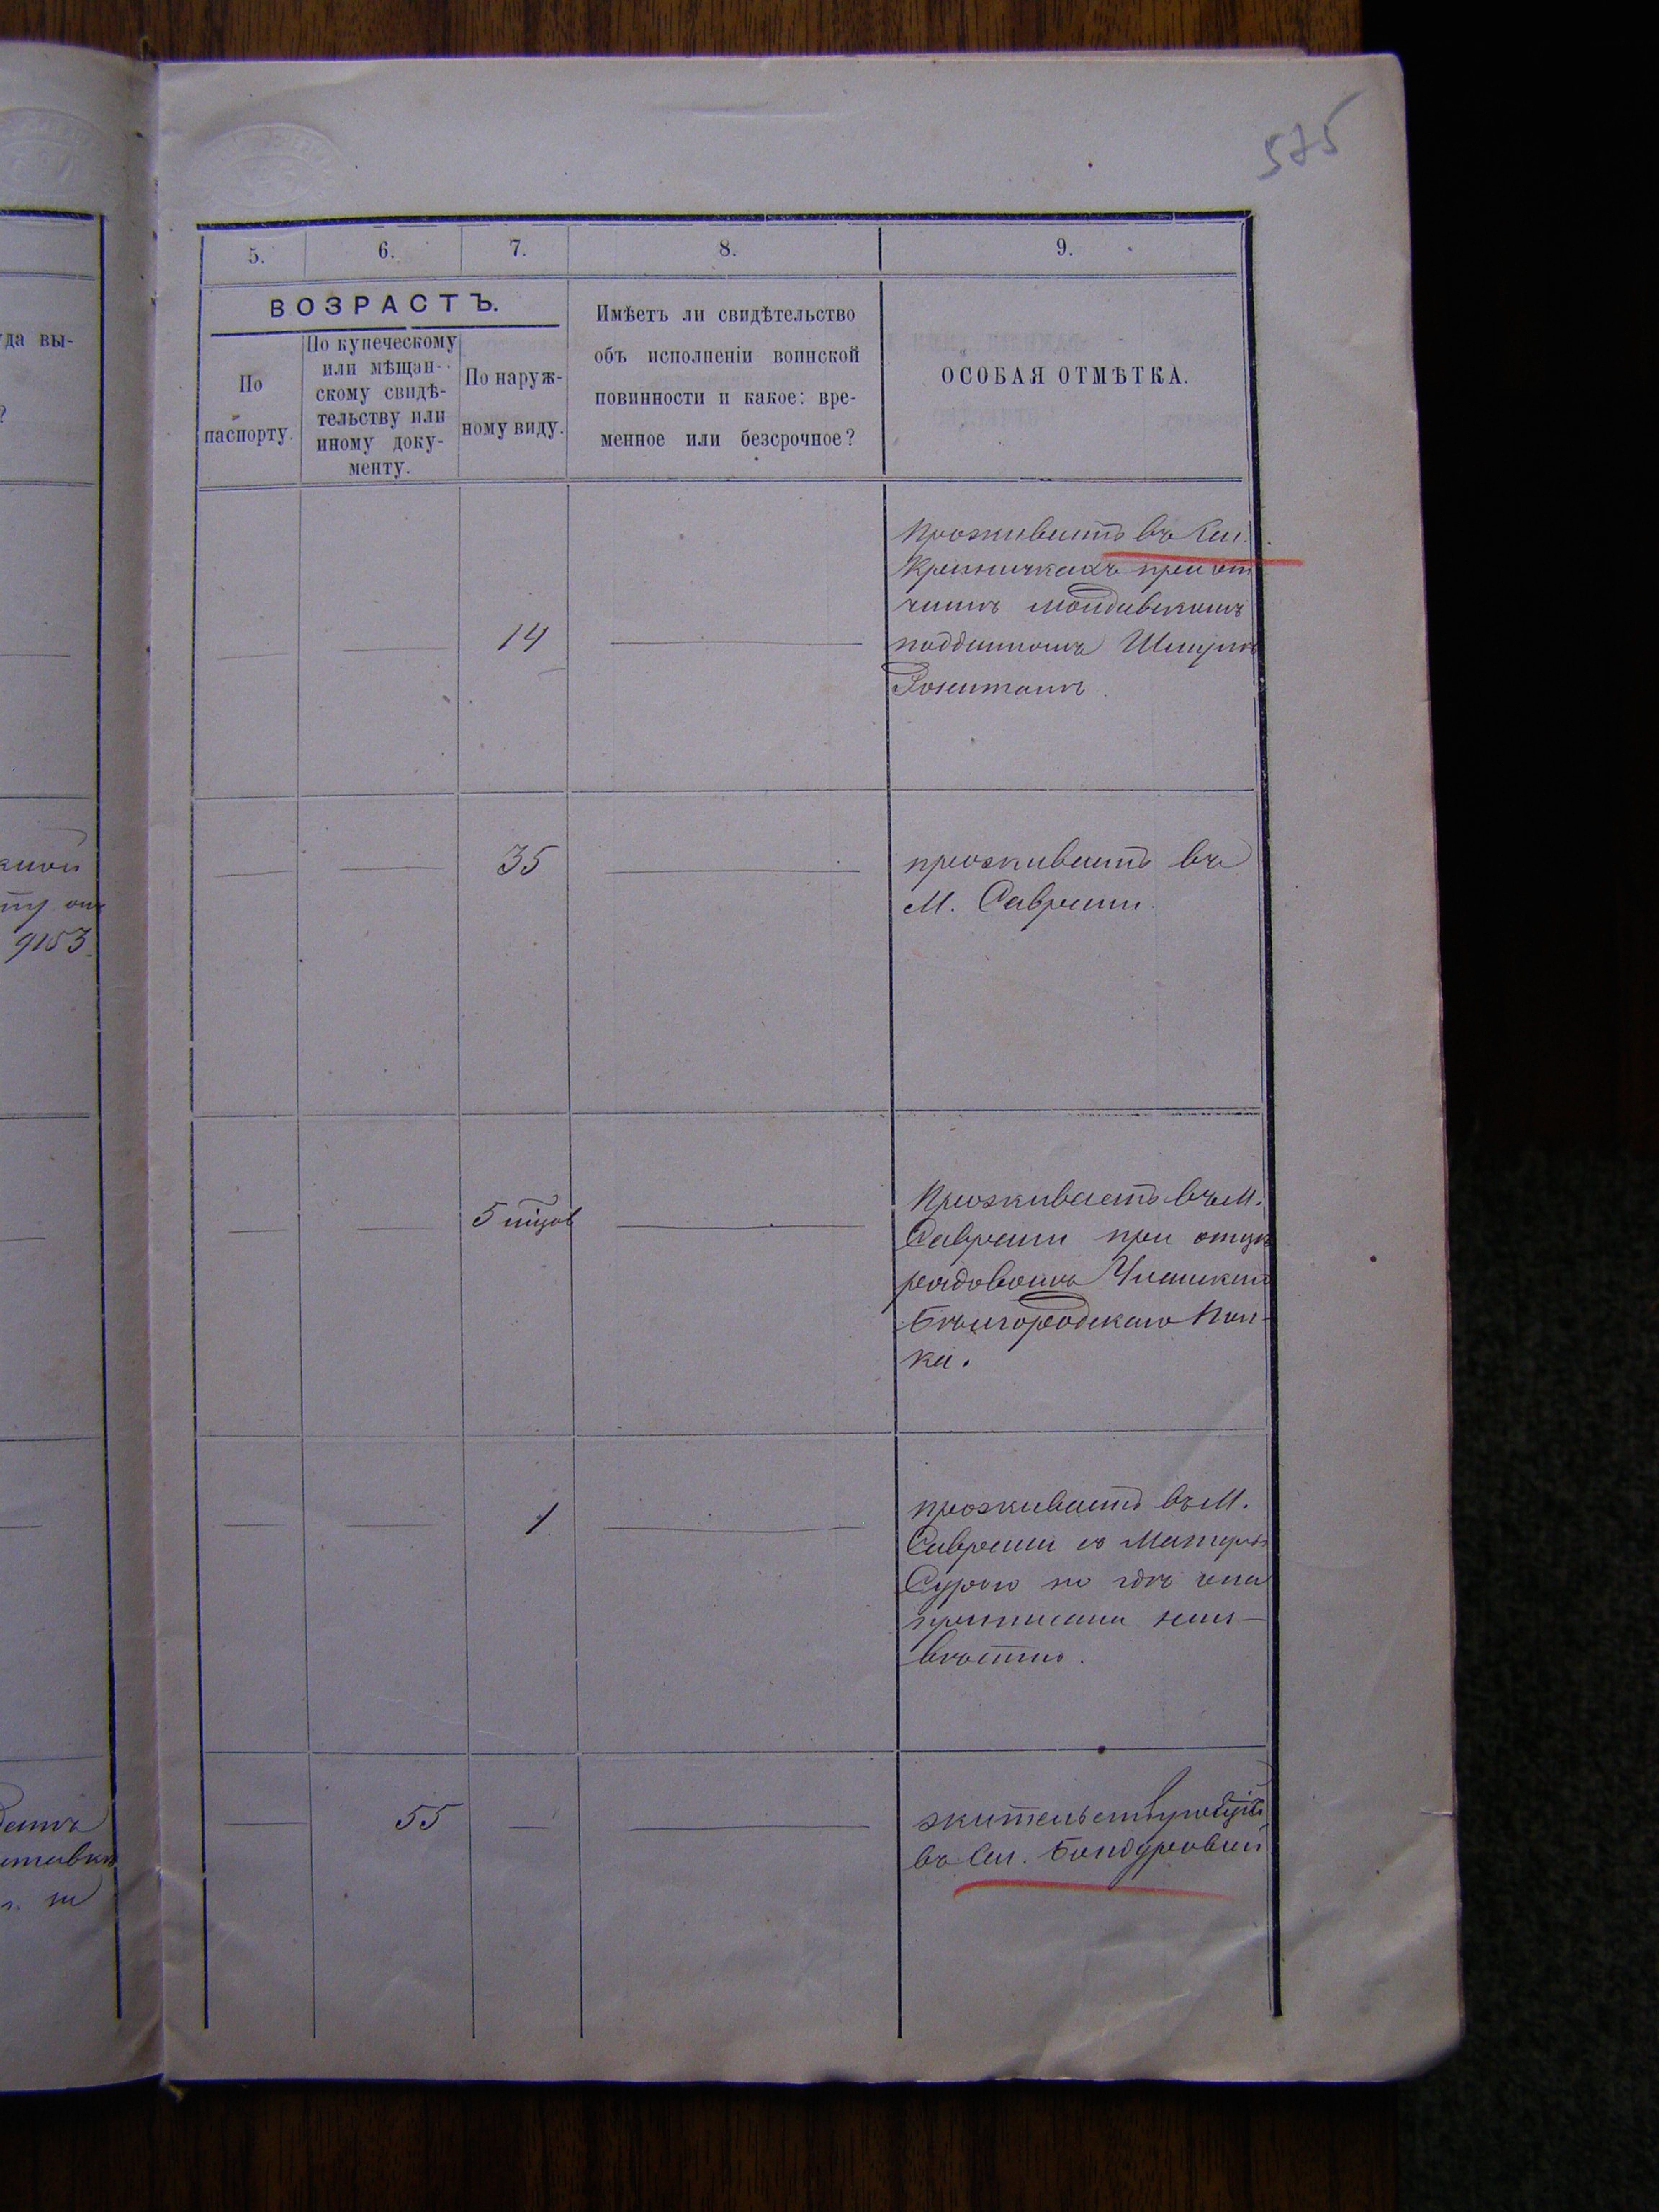 575
5. 6. 7. 8. 9.
ВОЗРАСТЪ.
По
паспорту.
По купеческому
или мѣщан-
скому свидѣ-
тельству или
иному доку-
менту.
По наруж-
ному виду.
Имѣетъ ли свидѣтельство
объ исполненіи воинской
повинности и какое: вре-
менное или безсрочное?
ОСОБАЯ ОТМѢТКА.
да вы-
?
14
Проживаетъ въ Сел.
Криничкахъ при от
чимѣ молдавскомъ
подданномъ Шмулѣ
35
проживаетъ въ
М. Саврани.
9153.
Проживаетъ въ М.
Саврани при отцѣ
рядовомъ
Бѣлгородскаго Пол-
ка.
1
проживаетъ въ М.
Саврани съ Матерью
Сурою но гдѣ она
приписана неиз-
вѣстно.
55
жительствуетъ
въ Сел. Бондуровкѣ